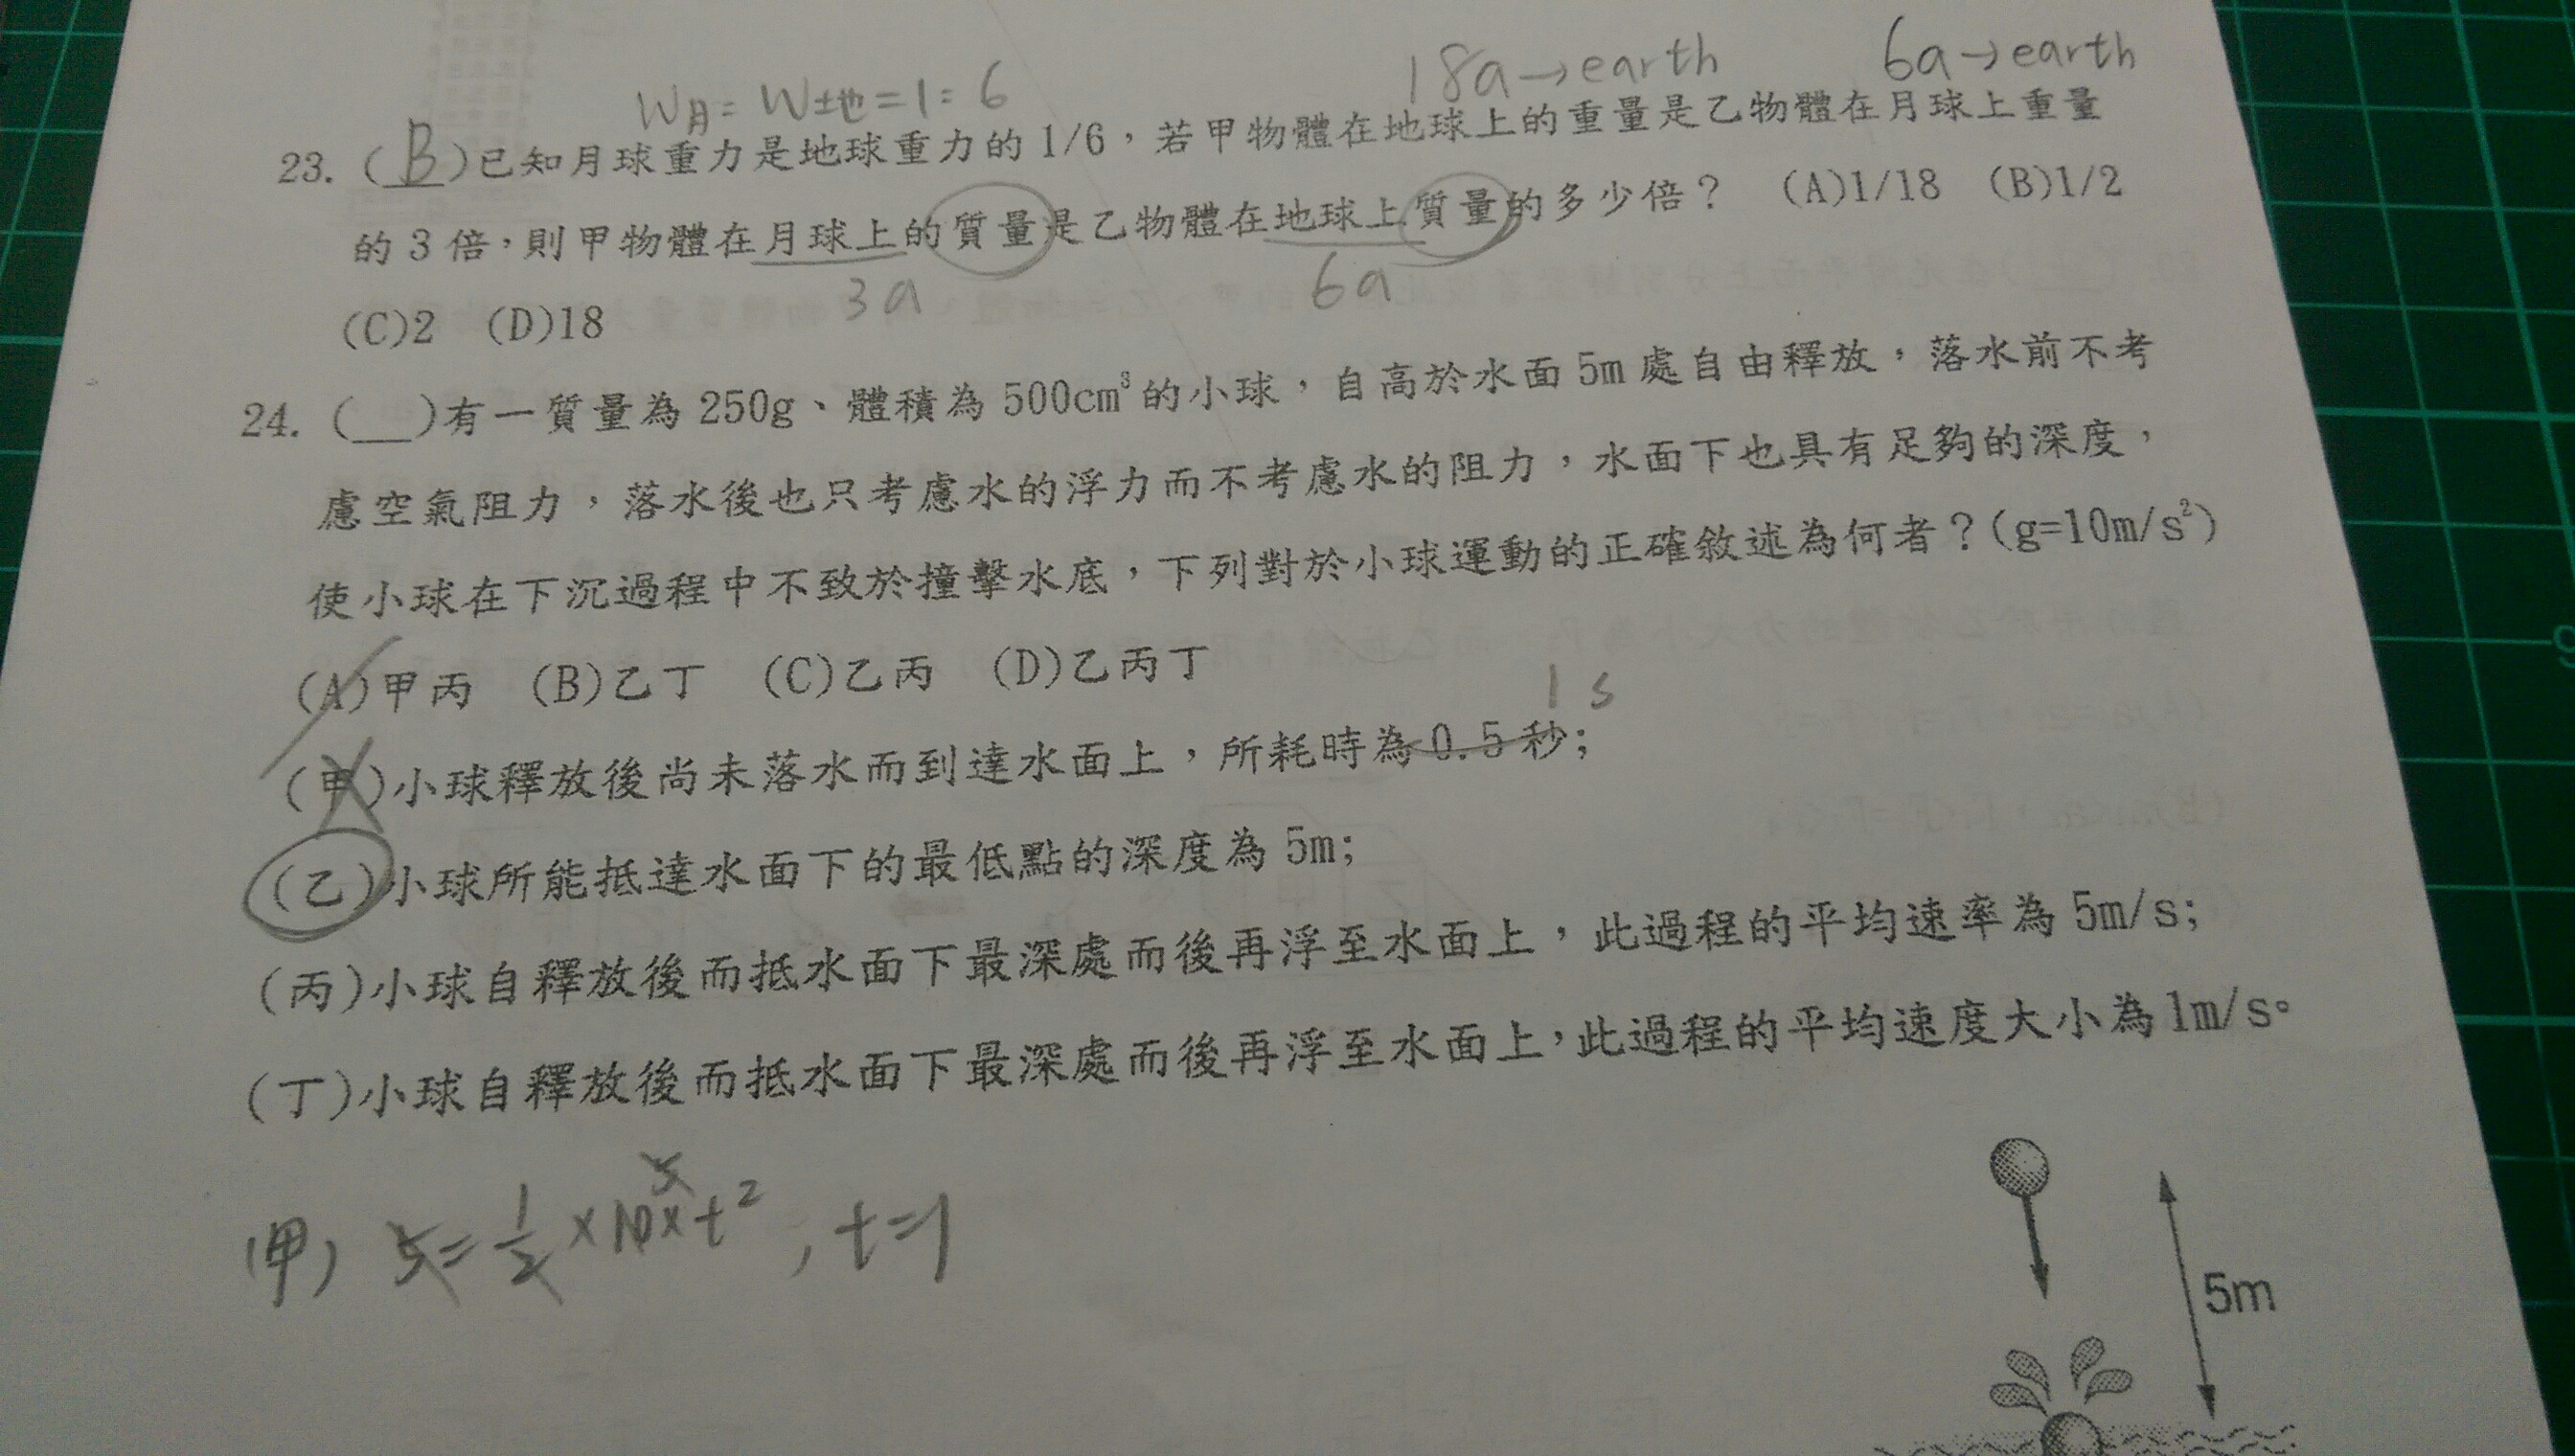 18a→earth 6a→earth
W月=W地=1:6
23. (B)已知月球重力是地球重力的 1/6，若甲物體在地球上的重量是乙物體在月球上重量
的 3 倍，則甲物體在月球上的質量是乙物體在地球上質量的多少倍？ (A)1/18 (B)1/2
3a 6a
(C)2 (D)18
24. (__)有一質量為 250g、體積為 500cm³的小球，自高於水面 5m 處自由釋放，落水前不考
慮空氣阻力，落水後也只考慮水的浮力而不考慮水的阻力，水面下也具有足夠的深度，
使小球在下沉過程中不致於撞擊水底，下列對於小球運動的正確敘述為何者？(g=10m/s²)
(A)甲丙 (B)乙丁 (C)乙丙 (D)乙丙丁
1s
(甲)小球釋放後尚未落水而到達水面上，所耗時為 0.5 秒；
(乙)小球所能抵達水面下的最低點的深度為 5m；
(丙)小球自釋放後而抵水面下最深處而後再浮至水面上，此過程的平均速率為 5m/s；
(丁)小球自釋放後而抵水面下最深處而後再浮至水面上，此過程的平均速度大小為 1m/s。
5
(甲) 5=1/2×10×t²，t=1
5m